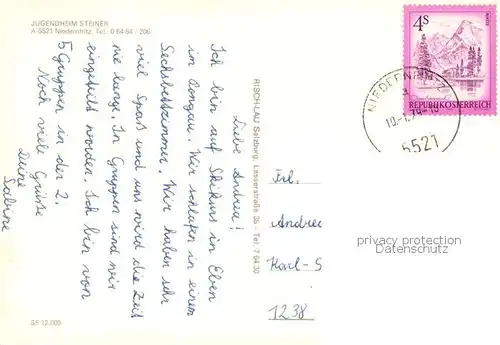 JUGENDHEIM STEINER
A-5521 Niedernfritz, Tel.: 0 64 64 / 206
Liebe Andrea!
Ich bin auf Skikurs in Eben
im Pongau. Wir schlafen in einem
Sechsbettzimmer. Wir haben sehr
viel Spaß und uns wird die Zeit
nie lange. In Gruppen sind wir
eingeteilt worden. Ich bin von
5 Gruppen in der 2.
Noch viele Grüße
Deine
Sabine
SF 12.009
RISCHLAU Salzburg, Lasserstraße 35 - Tel. 7 64 30
4S
REPUBLIK ÖSTERREICH
5521
Frl.
Andrea
Karl-S
1238
privacy protection
Datenschutz